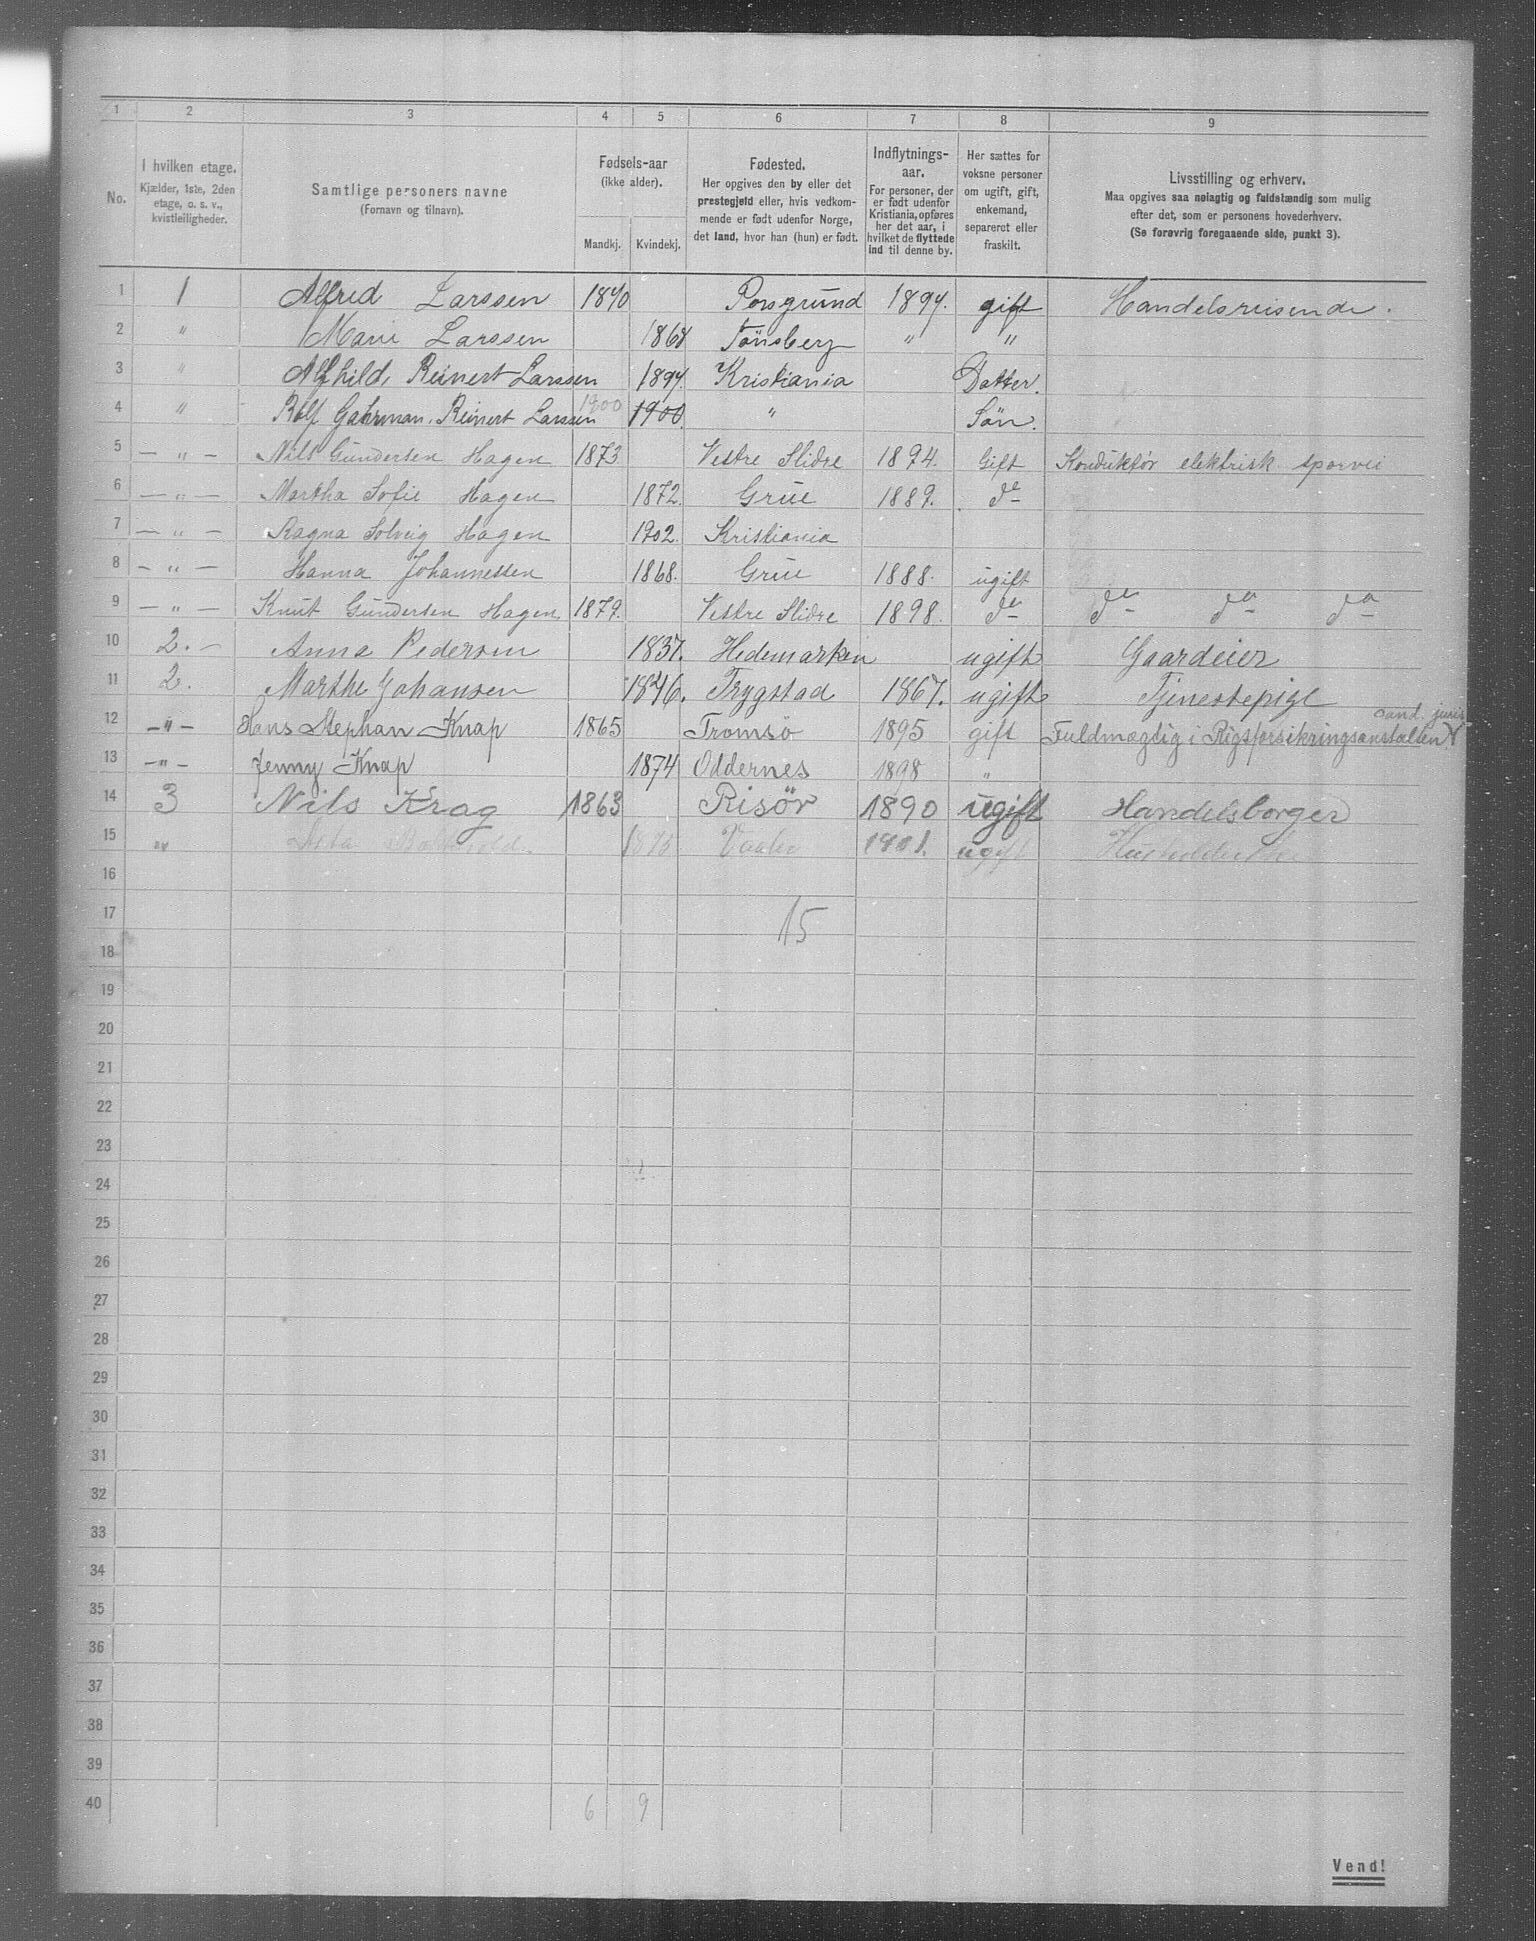 1 2 3 4 5 6 7 8 9
No.
I hvilken etage.
Kjælder, 1ste, 2den
etage, o. s. v.,
kvistleiligheder.
Samtlige personers navne
(Fornavn og tilnavn).
Fødsels-aar
(ikke alder).
Mandkj. Kvindekj.
Fødested.
Her opgives den by eller det
prestegjeld eller, hvis vedkom-
mende er født udenfor Norge,
det land, hvor han (hun) er født.
Indflytnings-
aar.
For personer, der
er født udenfor
Kristiania, opføres
her det aar, i
hvilket de flyttede
ind til denne by.
Her sættes for
voksne personer
om ugift, gift,
enkemand,
separeret eller
fraskilt.
Livsstilling og erhverv.
Maa opgives saa nøiagtig og fuldstændig som mulig
efter det, som er personens hovederhverv.
(Se forøvrig foregaaende side, punkt 3).
1 1 Alfred Larssen 1870 Porsgrund 1897. gift Handelsreisende.
2 " Marie Larssen 1868 Tønsberg " "
3 " Alfhild, Reinert Larssen 1897. Kristiania Datter.
4 " Rolf Gahrman. Reinert Larssen 1900 1900. " Søn.
5 — " — Nils Gundersen Hagen 1873 Vestre Slidre 1894. Gift Konduktør elektrisk sporvei
6 — " — Martha Sofie Hagen 1872. Grue 1889. do
7 — " — Ragna Solveig Hagen 1902. Kristiania
8 — " — Hanna Johannessen 1868. Grue 1888. ugift
9 — " — Knut Gundersen Hagen 1879. Vestre Slidre 1898. do do do do
10 2. – Anna Pedersen 1837. Hedemarken ugift Gaardeier
11 2. Marthe Johansen 1846. Trygstad 1867. ugift Tjenestepige
12 – " – Hans Stephan Knap 1865 Tromsø 1895 gift Fuldmægtig i Rigsforsikringsanstalten cand. juris
13 – " – Jenny Knap 1874 Oddernes 1898 "
14 3 Nils Krag 1863 Risör 1890 ugift Handelsborger
15 " Vaaler 1901. ugift
16
17 15
18
19
20
21
22
23
24
25
26
27
28
29
30
31
32
33
34
35
36
37
38
39
40 6 9
Vend!